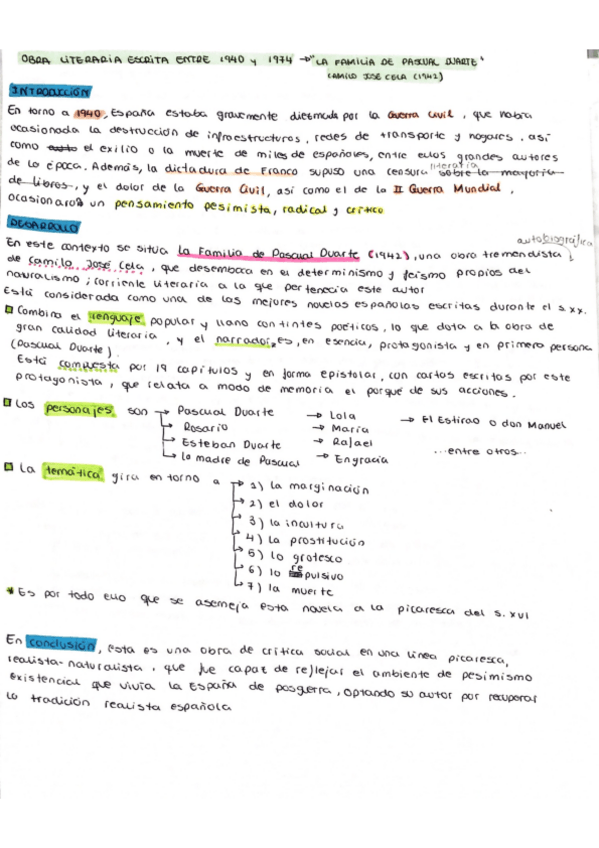 OBRA LITERARIA ESCRITA ENTRE 1940 y 1974 → "LA FAMILIA DE PASCUAL DUARTE"
CAMILO JOSÉ CELA (1942)
INTRODUCCIÓN
En torno a 1940, España estaba gravemente diezmada por la Guerra Civil, que había
ocasionada la destrucción de infraestructuras, redes de transporte y hogares, así
como el exilio o la muerte de miles de españoles, entre ellos grandes autores
de la época. Además, la dictadura de Franco supuso una censura literaria sobre la mayoría
de libros, y el dolor de la Guerra Civil, así como el de la II Guerra Mundial,
ocasionaron un pensamiento pesimista, radical y crítico
DESARROLLO
autobiográfica
En este contexto se sitúa La Familia de Pascual Duarte (1942), una obra tremendista
de Camilo José Cela, que desemboca en el determinismo y feísmo propios del
naturalismo; corriente literaria a la que pertenecía este autor
Está considerada como una de las mejores novelas españolas escritas durante el s.XX.
Combina el lenguaje popular y llano con tintes poéticos, lo que dota a la obra de
gran calidad literaria, y el narrador, es, en esencia, protagonista y en primera persona
(Pascual Duarte).
Está compuesta por 19 capítulos y en forma epistolar, con cartas escritas por este
protagonista, que relata a modo de memoria el porqué de sus acciones.
Los personajes son → Pascual Duarte → Lola → El Estirao o don Manuel
→ Rosario → María
→ Esteban Duarte → Rafael ...entre otros...
→ la madre de Pascual → Engracia
La temática gira en torno a → 1) la marginación
→ 2) el dolor
→ 3) la incultura
→ 4) la prostitución
→ 5) lo grotesco
→ 6) lo repulsivo
→ 7) la muerte
* Es por todo ello que se asemeja esta novela a la picaresca del s.XVI
En conclusión, esta es una obra de crítica social en una línea picaresca,
realista-naturalista, que fue capaz de reflejar el ambiente de pesimismo
existencial que vivía la España de posguerra, optando su autor por recuperar
la tradición realista española